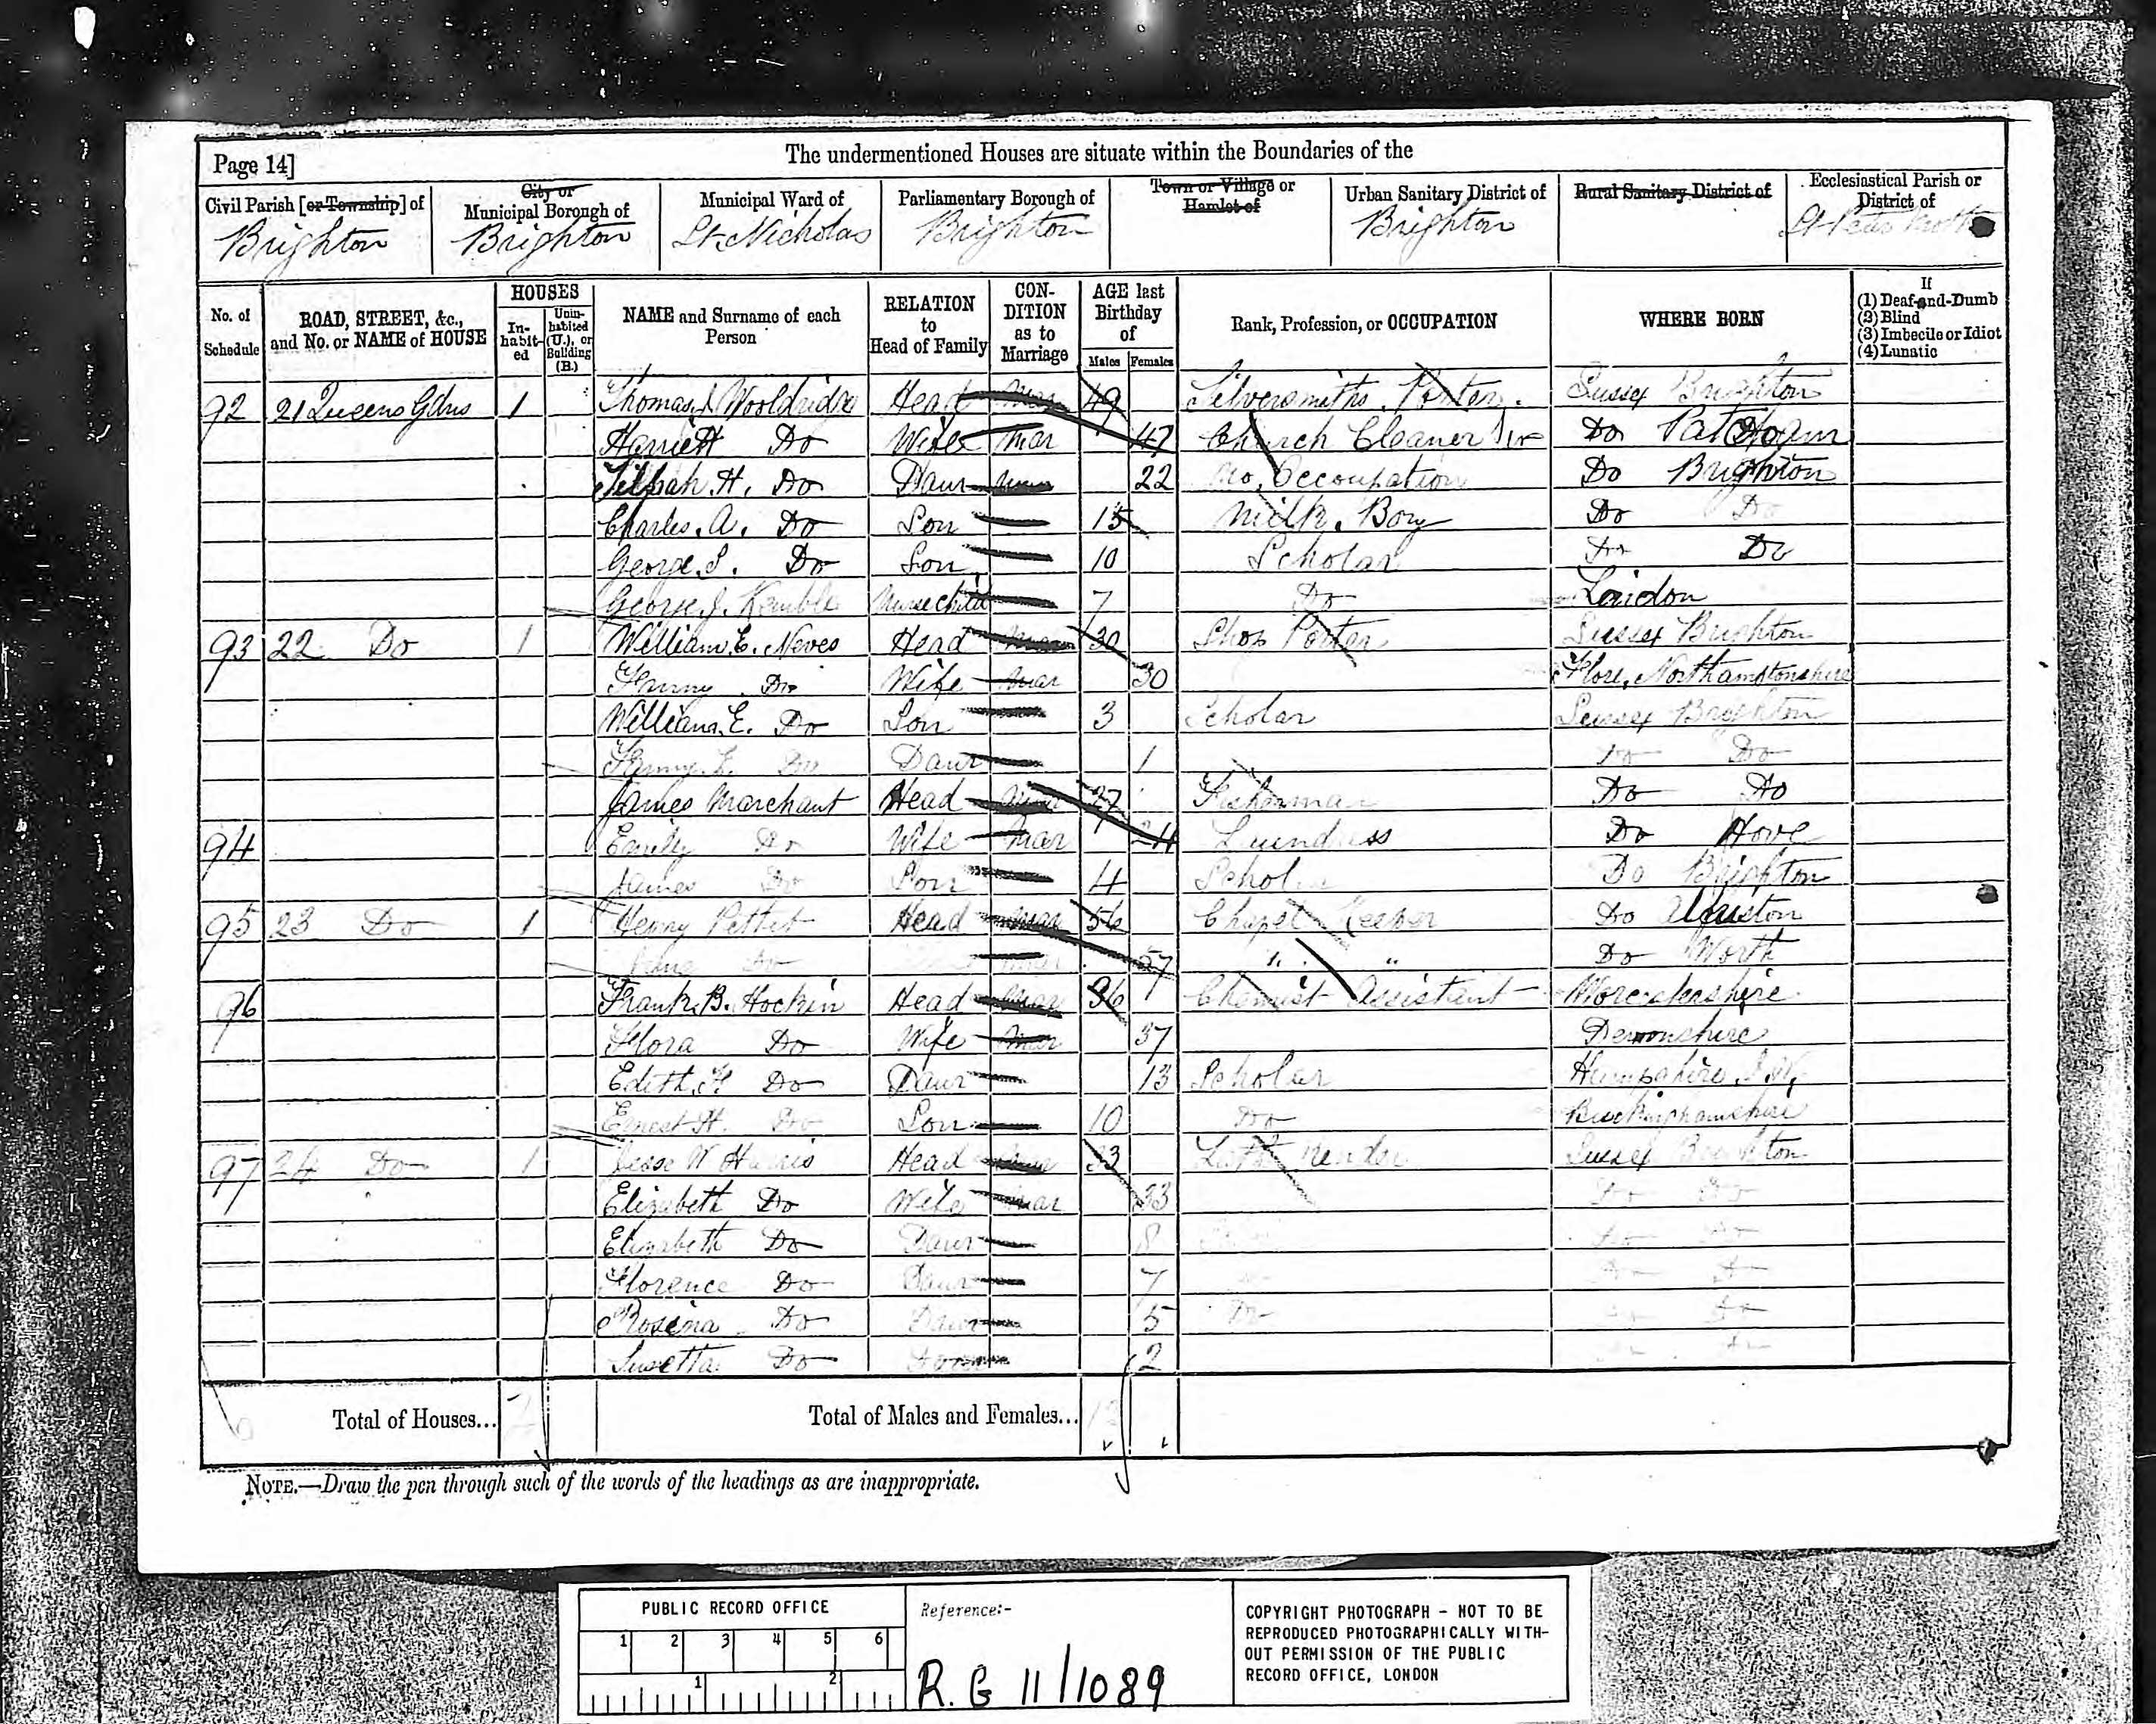 Page 14]
The undermentioned Houses are situate within the Boundaries of the
Civil Parish [or Township] of
Brighton
City or
Municipal Borough of
Brighton
Municipal Ward of
St. Nicholas
Parliamentary Borough of
Brighton
Town or Village or
Hamlet of
Urban Sanitary District of
Brighton
Rural Sanitary District of
Ecclesiastical Parish or
District of
St Peter
No. of Schedule
ROAD, STREET, &c., and No. or NAME of HOUSE
HOUSES
In-habit-ed
Unin-habited (U.), or Building (B.)
NAME and Surname of each Person
RELATION to Head of Family
CON-DITION as to Marriage
AGE last Birthday of
Males
Females
Rank, Profession, or OCCUPATION
WHERE BORN
If
(1) Deaf-and-Dumb
(2) Blind
(3) Imbecile or Idiot
(4) Lunatic
92 21 Queens Gdns 1 Thomas Wooldridge Head Mar 49 Silversmiths Porter. Sussex Brighton
Harriett Do Wife Mar 47 Church Cleaner Do Patcham
H. Do Daur 22 No Occoupation Do Brighton
Charles. A. Do Son 15 Milk. Boy Do Do
George. S. Do Son 10 Scholar Do Do
George. J. Kemble Nurse child 7 Do London
93 22 Do 1 William. E. Neves Head Mar 30 Shop Porter Sussex Brighton
Fanny Do Wife Mar 30 Flore, Northamptonshire
William. E. Do Son 3 Scholar Sussex Brighton
Fanny. E. Do Daur 1 Do Do
James Marchant Head Mar 27 Fisherman Do Do
94 Emily Do Wife Mar 24 Laundress Do Hove
James Do Son 4 Scholar Do Brighton
95 23 Do 1 Henry Pettit Head Mar 56 Chapel Keeper Do Alfriston
Do 57 " " Do Worth
96 Frank. B. Hockin Head Mar 36 Chemist Assistant Worcestershire
Flora Do Wife Mar 37 Devonshire
Edith. F. Do Daur 13 Scholar Hampshire I. W.
Ernest H. Do Son 10 Do Buckinghamshire
97 24 Do 1 Jesse W Harris Head Mar 33 Lath Render Sussex Brighton
Elizabeth Do Wife Mar 33 Do Do
Elizabeth Do Daur 8 Do Do
Florence Do Daur 7 Do Do
Rosina Do Daur 5 Do Do
Susetta Do 2
Total of Houses...
Total of Males and Females...
NOTE.—Draw the pen through such of the words of the headings as are inappropriate.
PUBLIC RECORD OFFICE
1 2 3 4 5 6
1 2
Reference:-
R.G 11/1089
COPYRIGHT PHOTOGRAPH - NOT TO BE
REPRODUCED PHOTOGRAPHICALLY WITH-
OUT PERMISSION OF THE PUBLIC
RECORD OFFICE, LONDON